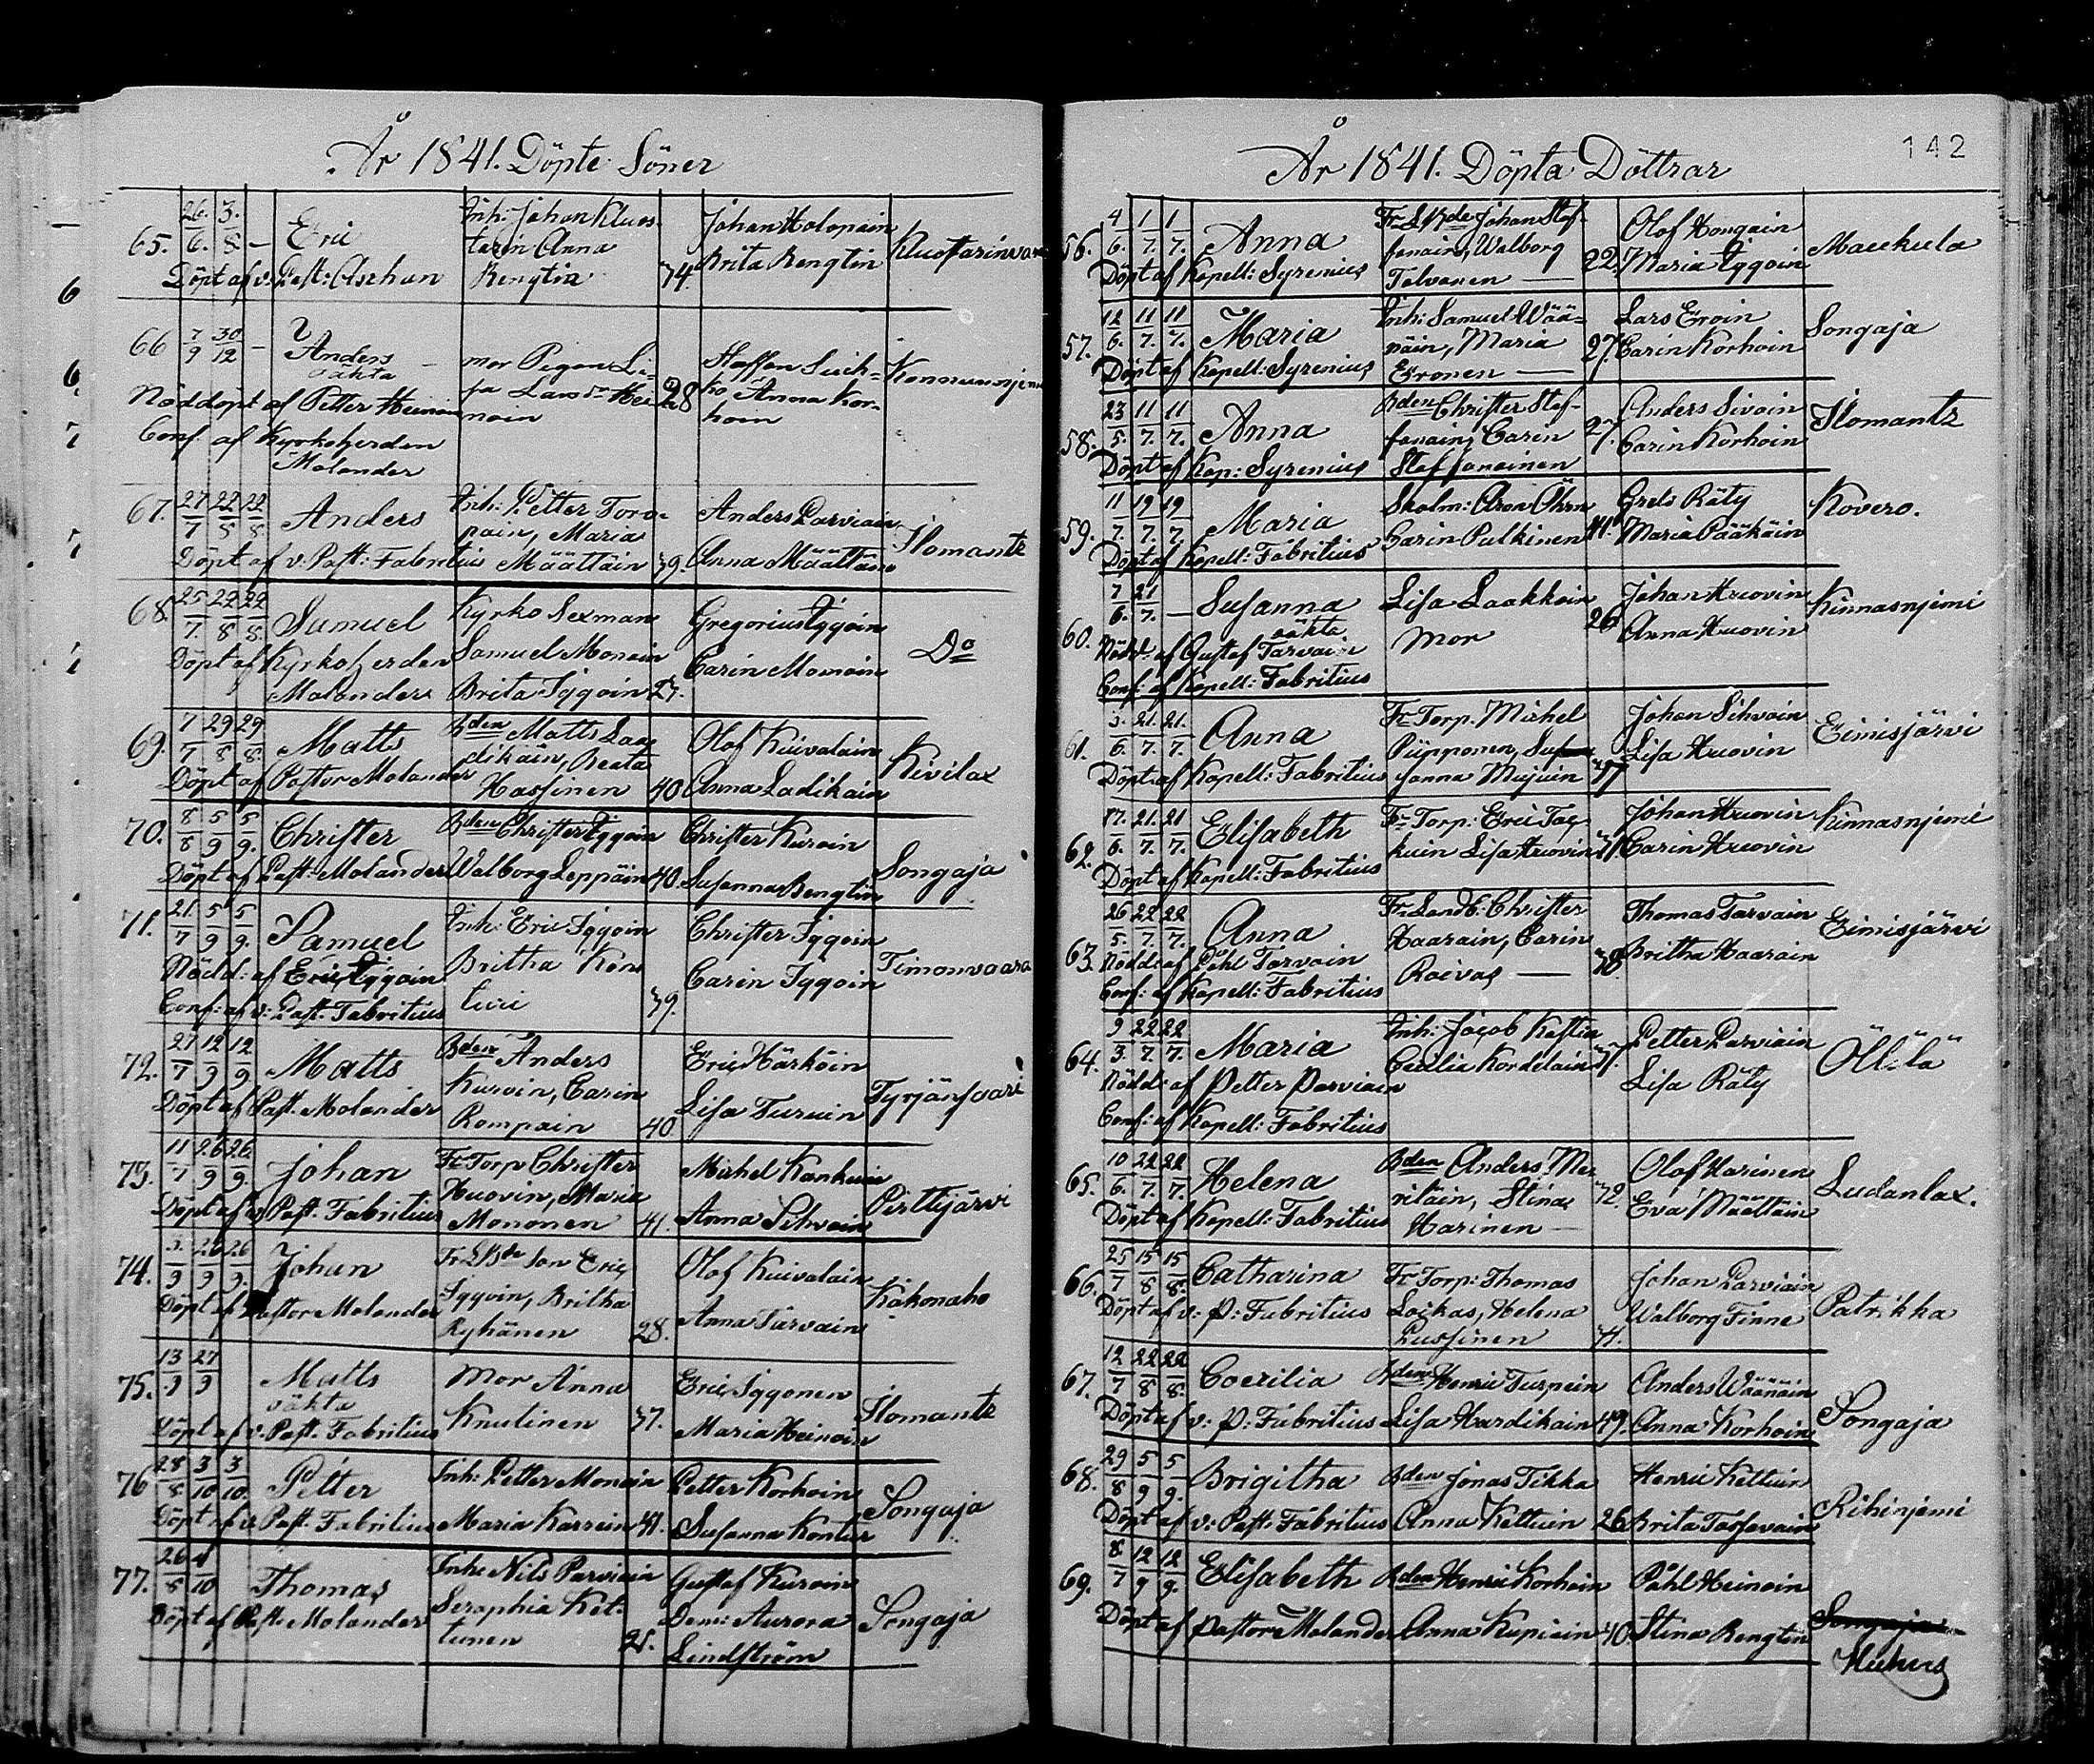 År 1841. Döpte Söner
65. 26/6. 3./8 — Eric Inh: Johan Kluas- Johan Holopain
tarin Anna Kluastarinvaara
Döpt af v: Past: Aschan Bengtin 74. Brita Bengtin
66 7/9 30/12 — Anders mor Pigan Li- Staffan Sück-
oäkta sa Larsdr Hei- 28 ko Anna Kor- Konnunnjemi
Nöddöpt af Petter Heinoin noin hoin
Conf. af Kyrkoherden
Molander
67. 27/7 22/8 22/8. Anders Inh: Petter Toro- Anders Parviain
pain, Maria Ilomants
Döpt af v: Past: Fabritius Määttäin 39. Anna Määttäin
68. 25/7. 22/8 22/8. Samuel Kyrko Sexman Gregorius Iggoin
Döpt af Kyrkoherden Samuel Monoin Carin Momoin Do
Molander Brita Iggoin 27.
69. 7/7 29/8 29/8. Matts Bden Matts Laa- Olof Kuivalain
dikäin, Beata Kivilax
Döpt af Pastor Molander Hassinen 40. Anna Ladikain
70. 8/8 5/9 5/9. Christer Bden Christer Iggoin Christer Kuroin
Döpt af Past: Molander Walborg Leppäin 40. Susanna Bengtin Songaja
71. 21./7 5/9 5/9. Samuel Inh: Eric Iggoin Christer Iggoin
Nödd: af Eric Iggoin Britha Kon- Carin Iggoin Timonvaara
Conf: af v: Past. Fabritius turi 39.
72. 27/7 12/9 12/9 Matts Bden Anders Eric Härköin
Kurvin, Carin Tyrjänsaari
Döpt af Past. Molander Rompain 40. Lisa Turuin
73. 11/7 26/9 26/9. Johan Fr Torp Christer Michel Kankuin
Huovin, Maria Pirttijärvi
Döpt af v Past. Fabritius Mononen 41. Anna Sihvoin
74. 3./9 26/9 26/9. Johan Fr LBde Son Eric Olof Kuivalain
Iggoin, Britha Käkonaho
Döpt af Pastor Molander Ryhänen 28. Anna Tarvain
75. 13/9 27/9 Matts Mor Anna Eric Iggonen
oäkta Ilomants
Döpt af v. Past. Fabritius Knutinen 37. Maria Heinoin
76 28/8 3/10 3/10. Petter Inh: Petter Monoin Petter Korhoin
Döpt af v Past. Fabritius Maria Karrein 41. Susanna Kontur Songaja
77. 26/8 4/10 Thomas Inh: Nils Parviain Gustaf Kuroin
Döpt af Past: Molander Seraphia Ket- Dem: Aurora Songaja
tunen 21. Lindström
År 1841. Döpta Döttrar 142
56. 4/6. 1/7. 1/7. Anna Fr LBde Johan Staf- Olof Hongain
fanain, Walborg Maukula
Döpt af Kapell: Syrenius Talvanen — 22. Maria Iggoin
57. 12/6. 11/7. 11/7. Maria Inh: Samuel Wää- Lars Eroin
näin, Maria 27. Carin Korhoin Songaja
Döpt af Kapell: Syrenius Eronen —
58. 23/5. 11/7. 11/7. Anna Bden Christer Staf- Anders Sivoin
fanain, Carin 27. Carin Korhoin Ilomantz
Döpt af Kap: Syrenius Staffanainen
59. 11/7. 19/7. 19/7. Maria Skolm: Aron Öhrn Grels Räty Kovero.
Carin Pulkinen 41. Maria Pääkäin
Döpt af Kapell: Fabritius
60. 7/6. 21/7. — Susanna Lisa Laakkoin Johan Huovin Kinnasnjemi
oäkta mor 26 Anna Huovin
Nödd: af Gustaf Tarvain
Conf: af Kapell: Fabritius
61. 3./6. 21./7. 21./7. Anna Fr Torp. Michel Johan Sihvoin
Piipponen, Su- Lisa Huovin Eimisjärvi
Döpt af Kapell: Fabritius sanna Mujuin 37
62. 17./6. 21./7. 21/7. Elisabeth Fr Torp: Eric Tas- Johan Huovin Kinnasnjemi
kuin Lisa Huovin 41. Carin Huovin
Döpt af Kapell: Fabritius
63. 26/5. 22/7. 22/7. Anna Fr Landb: Christer Thomas Tarvain
Haarain, Carin Eimisjärvi
Nödd: af Påhl Tarvain Roivas — 38. Britha Haarain
Conf: af Kapell: Fabritius
64. 9/3. 22/7. 22/7. Maria Inh: Jacob Kostia Petter Parviain
Cecilia Kordelain 37. Öllölä
Nödd: af Petter Parviain Lisa Räty
Conf: af Kapell: Fabritius
65. 10/6. 22/7. 22/7. Helena Bden Anders Me- Olof Harinen
riläin, Stina 32. Eva Määttäin Ludanlax.
Döpt af Kapell: Fabritius Harinen —
66. 25/7 15/8 15/8. Catharina Fr Torp: Thomas Johan Parviain
Döpt af v: P: Fabritius Loikas, Helena Walborg Finne Patrikka
Pussinen 41.
67. 12/7 22/8 22/8. Coecilia Bden Henric Turpein Anders Wäänäin
Döpt af v: P: Fabritius Lisa Hurdikain 49. Anna Korhoin Songaja
68. 29/8 5/9 5/9. Brigitha Bden Jonas Tikka Henric Kettuin
Döpt af v: Past. Fabritius Anna Kettuin 26 Brita Tarsavain Rihinjemi
69. 8/7 12/9 12/9. Elisabeth Bden Henric Korhoin Påhl Heinoin
Döpt af Pastor Molander Anna Kupiain 40 Stina Bengtin Songaja
Huhus